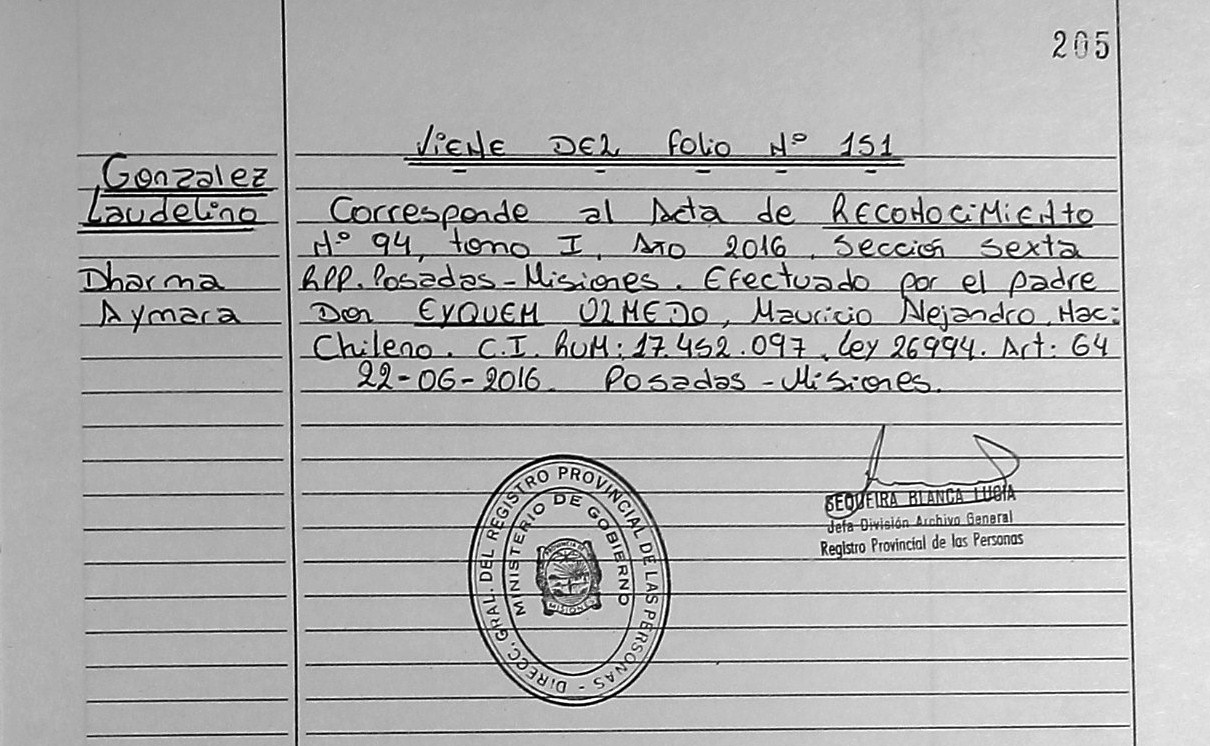 205
Viene DEL Folio Nº 151
Gonzalez
Laudelino
Dharma
Aymara
Corresponde al Acta de RECONOCIMIENTO
Nº 94, tomo I, Año 2016, Sección Sexta
RPP. Posadas-Misiones. Efectuado por el padre
Don EYQUEM OLMEDO, Mauricio Alejandro, Nac:
Chileno. C.I. RUM: 17.452.097, Ley 26994. Art: 64
22-06-2016. Posadas-Misiones.
DIRECC. GRAL. DEL REGISTRO PROVINCIAL DE LAS PERSONAS -
MINISTERIO DE GOBIERNO
MISIONES
SEQUEIRA BLANCA LUCIA
Jefa División Archivo General
Registro Provincial de las Personas